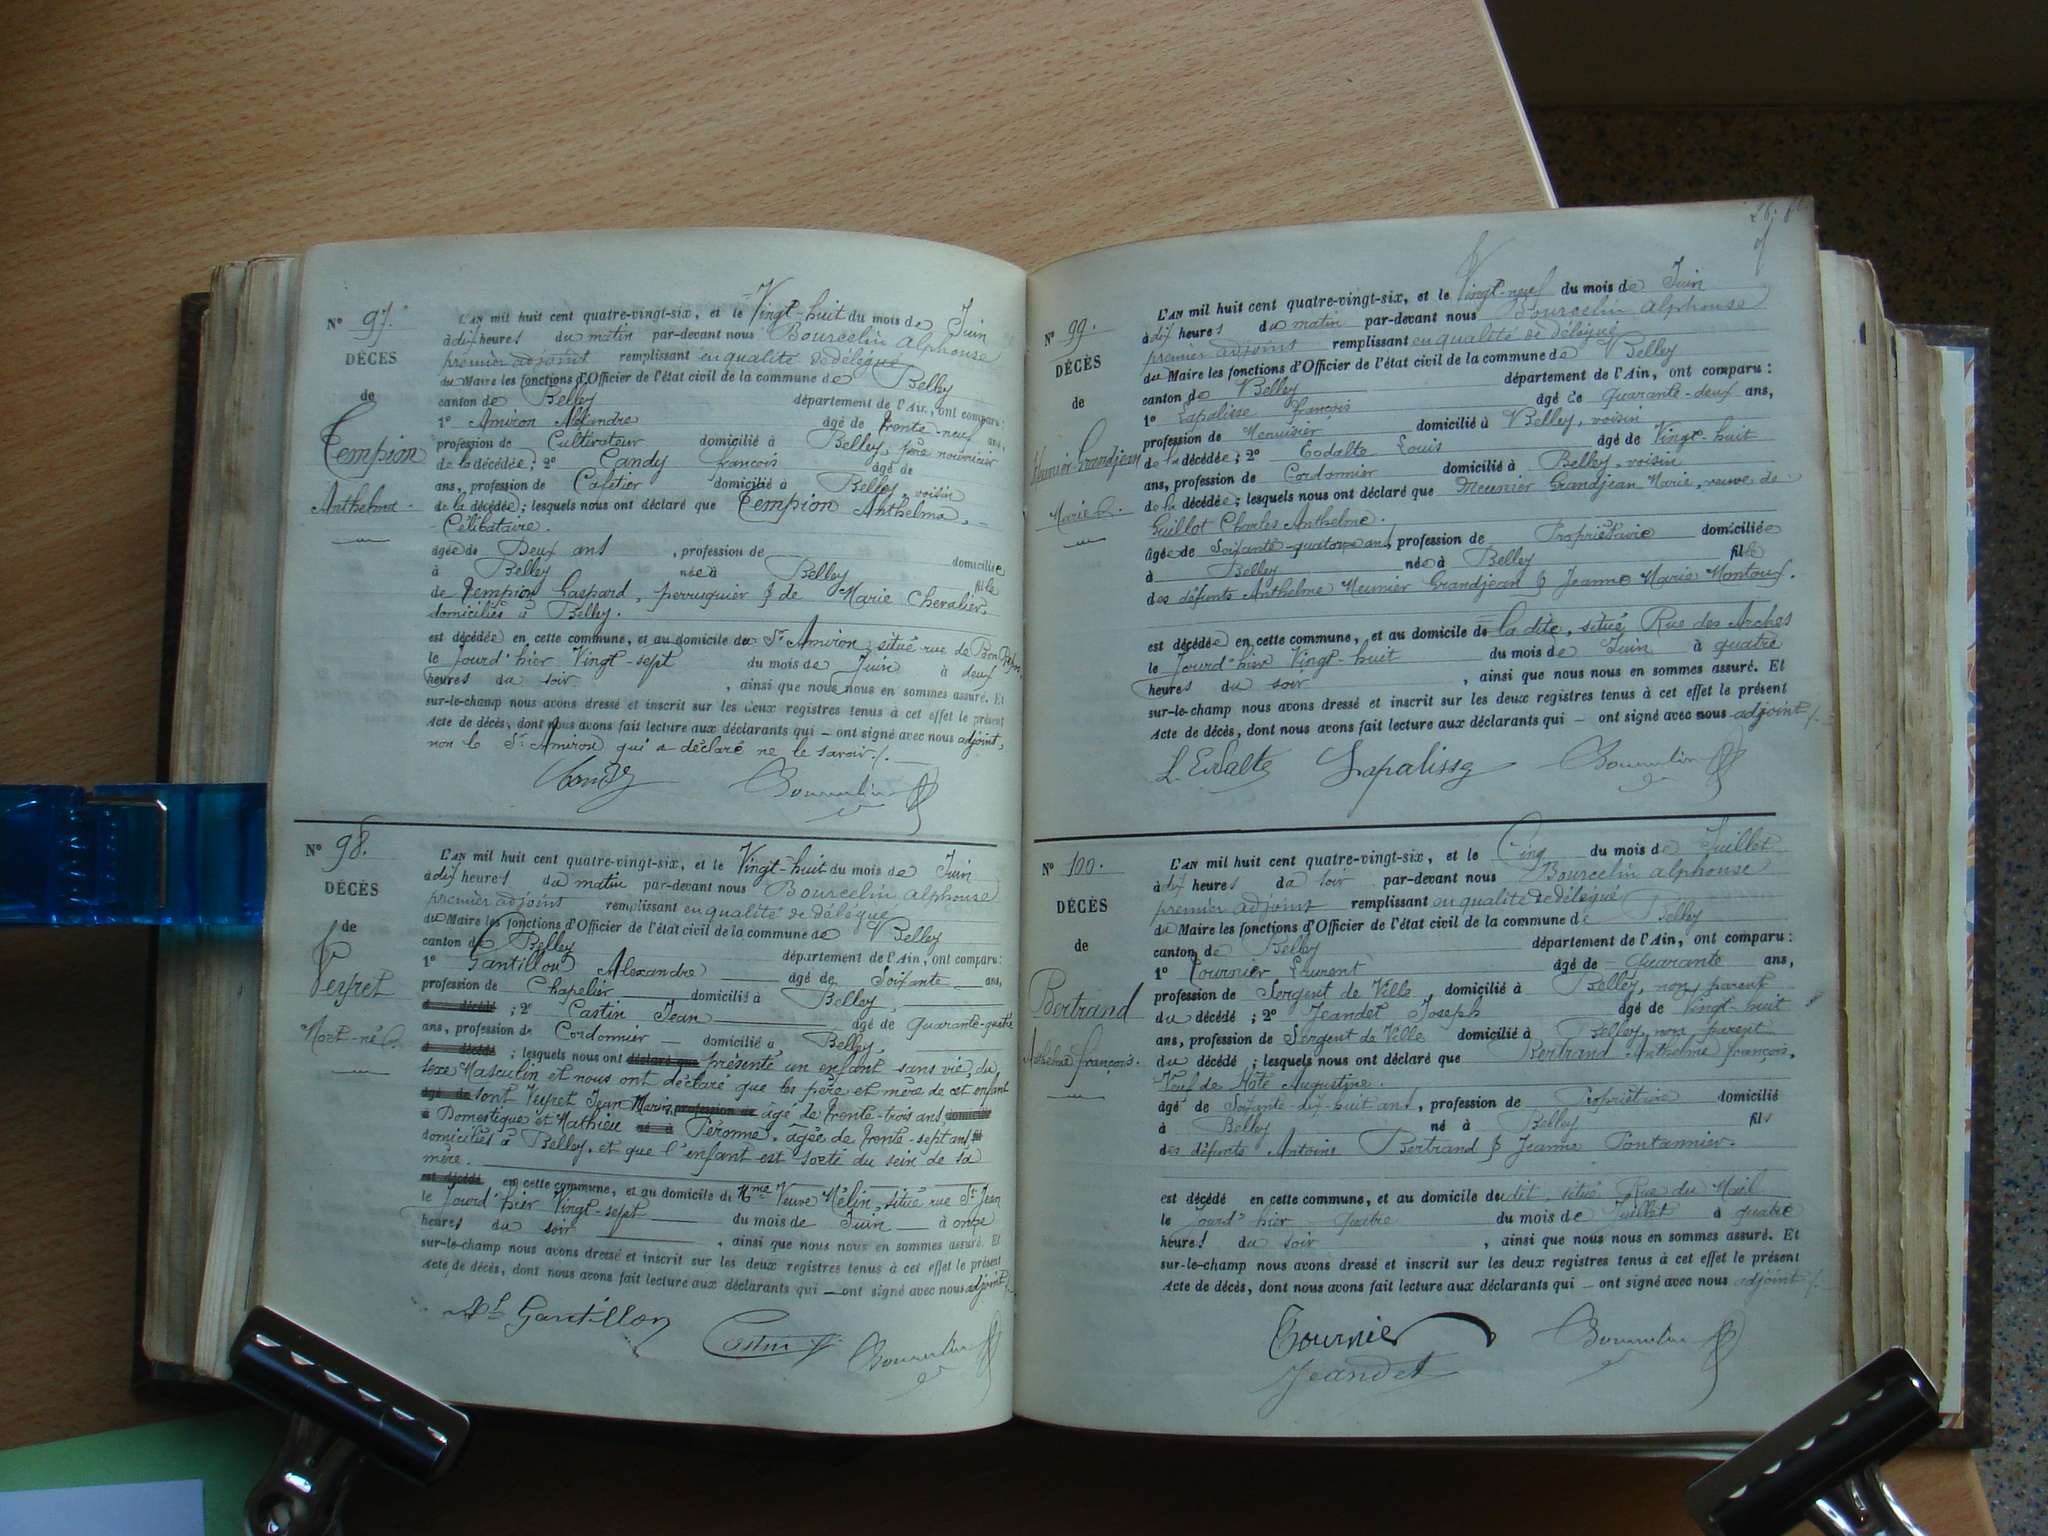 N° 97.
DÉCÈS
de
Tempion
Anthelma.
L'AN mil huit cent quatre-vingt-six, et le Vingt-huit du mois de Juin
à dix heures du matin par-devant nous Bourcelin Alphonse
premier adjoint remplissant en qualité de délégué
du Maire les fonctions d'Officier de l'état civil de la commune de Belley
canton de Belley département de l'Ain, ont comparu:
1° Amiron Alexandre âgé de trente-neuf ans,
profession de Cultivateur domicilié à Belley, père nourricier
de la décédée; 2° Candy françois âgé de
ans, profession de Cafetier domicilié à Belley, voisin
de la décédée; lesquels nous ont déclaré que Tempion Anthelma,
Célibataire.
âgée de Deux ans, profession de domiciliée
à Belley née à Belley fille
de Tempion Gaspard, perruquier & de Marie Chevalier,
domiciliés à Belley.
est décédée en cette commune, et au domicile du Sr Amiron, situé rue de Bon Repos,
le Jourd'hier Vingt-sept du mois de Juin à deux
heures du soir, ainsi que nous nous en sommes assuré. Et
sur-le-champ nous avons dressé et inscrit sur les deux registres tenus à cet effet le présent
Acte de décès, dont nous avons fait lecture aux déclarants qui — ont signé avec nous adjoint,
non le Sr Amiron qui a déclaré ne le savoir./.
Candy Bourcelin
N° 98.
DÉCÈS
de
Veyret
Mort-né
L'AN mil huit cent quatre-vingt-six, et le Vingt-huit du mois de Juin
à dix heures du matin par-devant nous Bourcelin Alphonse
premier adjoint remplissant en qualité de délégué
du Maire les fonctions d'Officier de l'état civil de la commune de Belley
canton de Belley département de l'Ain, ont comparu:
1° Gantillon Alexandre âgé de Soixante ans,
profession de Chapelier domicilié à Belley,
d décédé; 2° Castin Jean âgé de quarante-quatre
ans, profession de Cordonnier domicilié à Belley,
d décédé; lesquels nous ont déclaré que présenté un enfant sans vie, du
sexe Masculin et nous ont déclaré que les père et mère de cet enfant
âgé de sont Veyret Jean Marie, profession de âgé de trente-trois ans domicilié
à Domestique et Mathieu né à Péronne, âgée de trente-sept ans, fil
domiciliés à Belley, et que l'enfant est sorti du sein de sa
mère.
est décédé en cette commune, et au domicile de Mme Veuve Mélin, situé rue St Jean
le Jourd'hier Vingt-sept du mois de Juin à onze
heures du soir, ainsi que nous nous en sommes assuré. Et
sur-le-champ nous avons dressé et inscrit sur les deux registres tenus à cet effet le présent
Acte de décès, dont nous avons fait lecture aux déclarants qui — ont signé avec nous adjoint/.
Al. Gantillon Castin Bourcelin
N° 99.
DÉCÈS
de
Meunier-Grandjean
Marie
L'AN mil huit cent quatre-vingt-six, et le Vingt-neuf du mois de Juin
à dix heures du matin par-devant nous Bourcelin Alphonse
premier adjoint remplissant en qualité de délégué
du Maire les fonctions d'Officier de l'état civil de la commune de Belley
canton de Belley département de l'Ain, ont comparu:
1° Lapalisse françois âgé de quarante-deux ans,
profession de Menuisier domicilié à Belley, voisin
de la décédée; 2° Eodalte Louis âgé de Vingt-huit
ans, profession de Cordonnier domicilié à Belley, voisin
de la décédée; lesquels nous ont déclaré que Meunier Grandjean Marie, veuve de
Guillot Charles Anthelme.
âgée de Soixante-quatorze ans, profession de Propriétaire domiciliée
à Belley née à Belley fille
des défunts Anthelme Meunier Grandjean & Jeanne Marie Montoux.
est décédée en cette commune, et au domicile de la dite, situé Rue des Arches
le Jourd'hier Vingt-huit du mois de Juin à quatre
heures du soir, ainsi que nous nous en sommes assuré. Et
sur-le-champ nous avons dressé et inscrit sur les deux registres tenus à cet effet le présent
Acte de décès, dont nous avons fait lecture aux déclarants qui — ont signé avec nous adjoint/.
Lapalisse Bourcelin
N° 100.
DÉCÈS
de
Bertrand
Anthelme françois.
L'AN mil huit cent quatre-vingt-six, et le Cinq du mois de Juillet
à dix heures du soir par-devant nous Bourcelin Alphonse
premier adjoint remplissant en qualité de délégué
du Maire les fonctions d'Officier de l'état civil de la commune de Belley
canton de Belley département de l'Ain, ont comparu:
1° Tournier Laurent âgé de Quarante ans,
profession de Sergent de Ville, domicilié à Belley, non parent
du décédé; 2° Jeandet Joseph âgé de Vingt-huit
ans, profession de Sergent de Ville domicilié à Belley, non parent
du décédé; lesquels nous ont déclaré que Bertrand Anthelme françois,
Veuf de Hôte Augustine.
âgé de Soixante-dix-huit ans, profession de Propriétaire domicilié
à Belley né à Belley fils
des défunts Antoine Bertrand & Jeanne Pontannier.
est décédé en cette commune, et au domicile du dit, situé Rue du Mail
le Jourd'hier quatre du mois de Juillet à quatre
heures du soir, ainsi que nous nous en sommes assuré. Et
sur-le-champ nous avons dressé et inscrit sur les deux registres tenus à cet effet le présent
Acte de décès, dont nous avons fait lecture aux déclarants qui — ont signé avec nous adjoint/.
Tournier Bourcelin
Jeandet